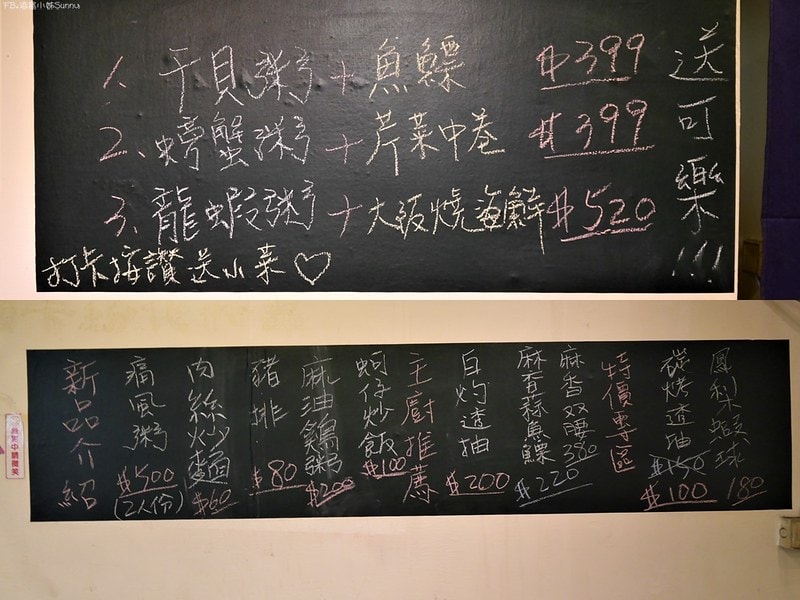 FB.滔滔小姊Sunny
1. 干貝粥+魚鰾 $399
2、螃蟹粥+芹菜中卷 $399
3、龍蝦粥+大阪燒海鮮 $520
送可樂!!!
打卡按讚送小菜♡
新品介紹
痛風粥 $500 (2人份)
肉絲炒麵 $60
豬排 $80
麻油鷄粥 $200
蚵仔炒飯 $100
主廚推薦
白灼透抽 $200
麻香蒜魚鰾 $220
麻香双腰 380
特價專區
碳烤透抽 $150 $100
鳳梨蝦球 180
錄影中請微笑